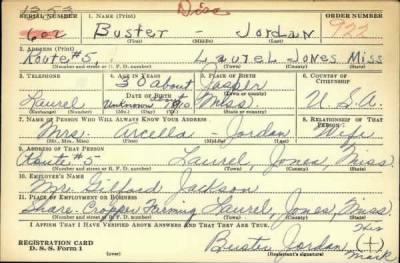 1353 Dead
SERIAL NUMBER 1. NAME (Print) ORDER NUMBER
602 Buster - Jordan 922
(First) (Middle) (Last)
2. ADDRESS (Print)
Route #5, Laurel Jones Miss
(Number and street or R. F. D. number) (Town) (County) (State)
3. TELEPHONE 4. AGE IN YEARS 5. PLACE OF BIRTH 6. COUNTRY OF CITIZENSHIP
30 About Jasper
DATE OF BIRTH
Laurel Unknown 1910 Miss. U.S.A.
(Exchange) (Number) (Mo.) (Day) (Yr.) (State or country)
7. NAME OF PERSON WHO WILL ALWAYS KNOW YOUR ADDRESS 8. RELATIONSHIP OF THAT PERSON
Mrs. Arcella - Jordan Wife
(Mr., Mrs., Miss) (First) (Middle) (Last)
9. ADDRESS OF THAT PERSON
Route #5 Laurel, Jones, Miss.
(Number and street or R. F. D. number) (Town) (County) (State)
10. EMPLOYER'S NAME
Mr. Gilford Jackson
11. PLACE OF EMPLOYMENT OR BUSINESS
Share-Cropper Farming Laurel, Jones, Miss.
(Number and street or R. F. D. number) (Town) (County) (State)
I AFFIRM THAT I HAVE VERIFIED ABOVE ANSWERS AND THAT THEY ARE TRUE. His
REGISTRATION CARD Buster Jordan (+)
D. S. S. Form 1 (Registrant's signature) mark